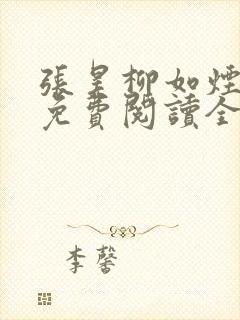 張昊柳如煙
免費閱讀全
李馨